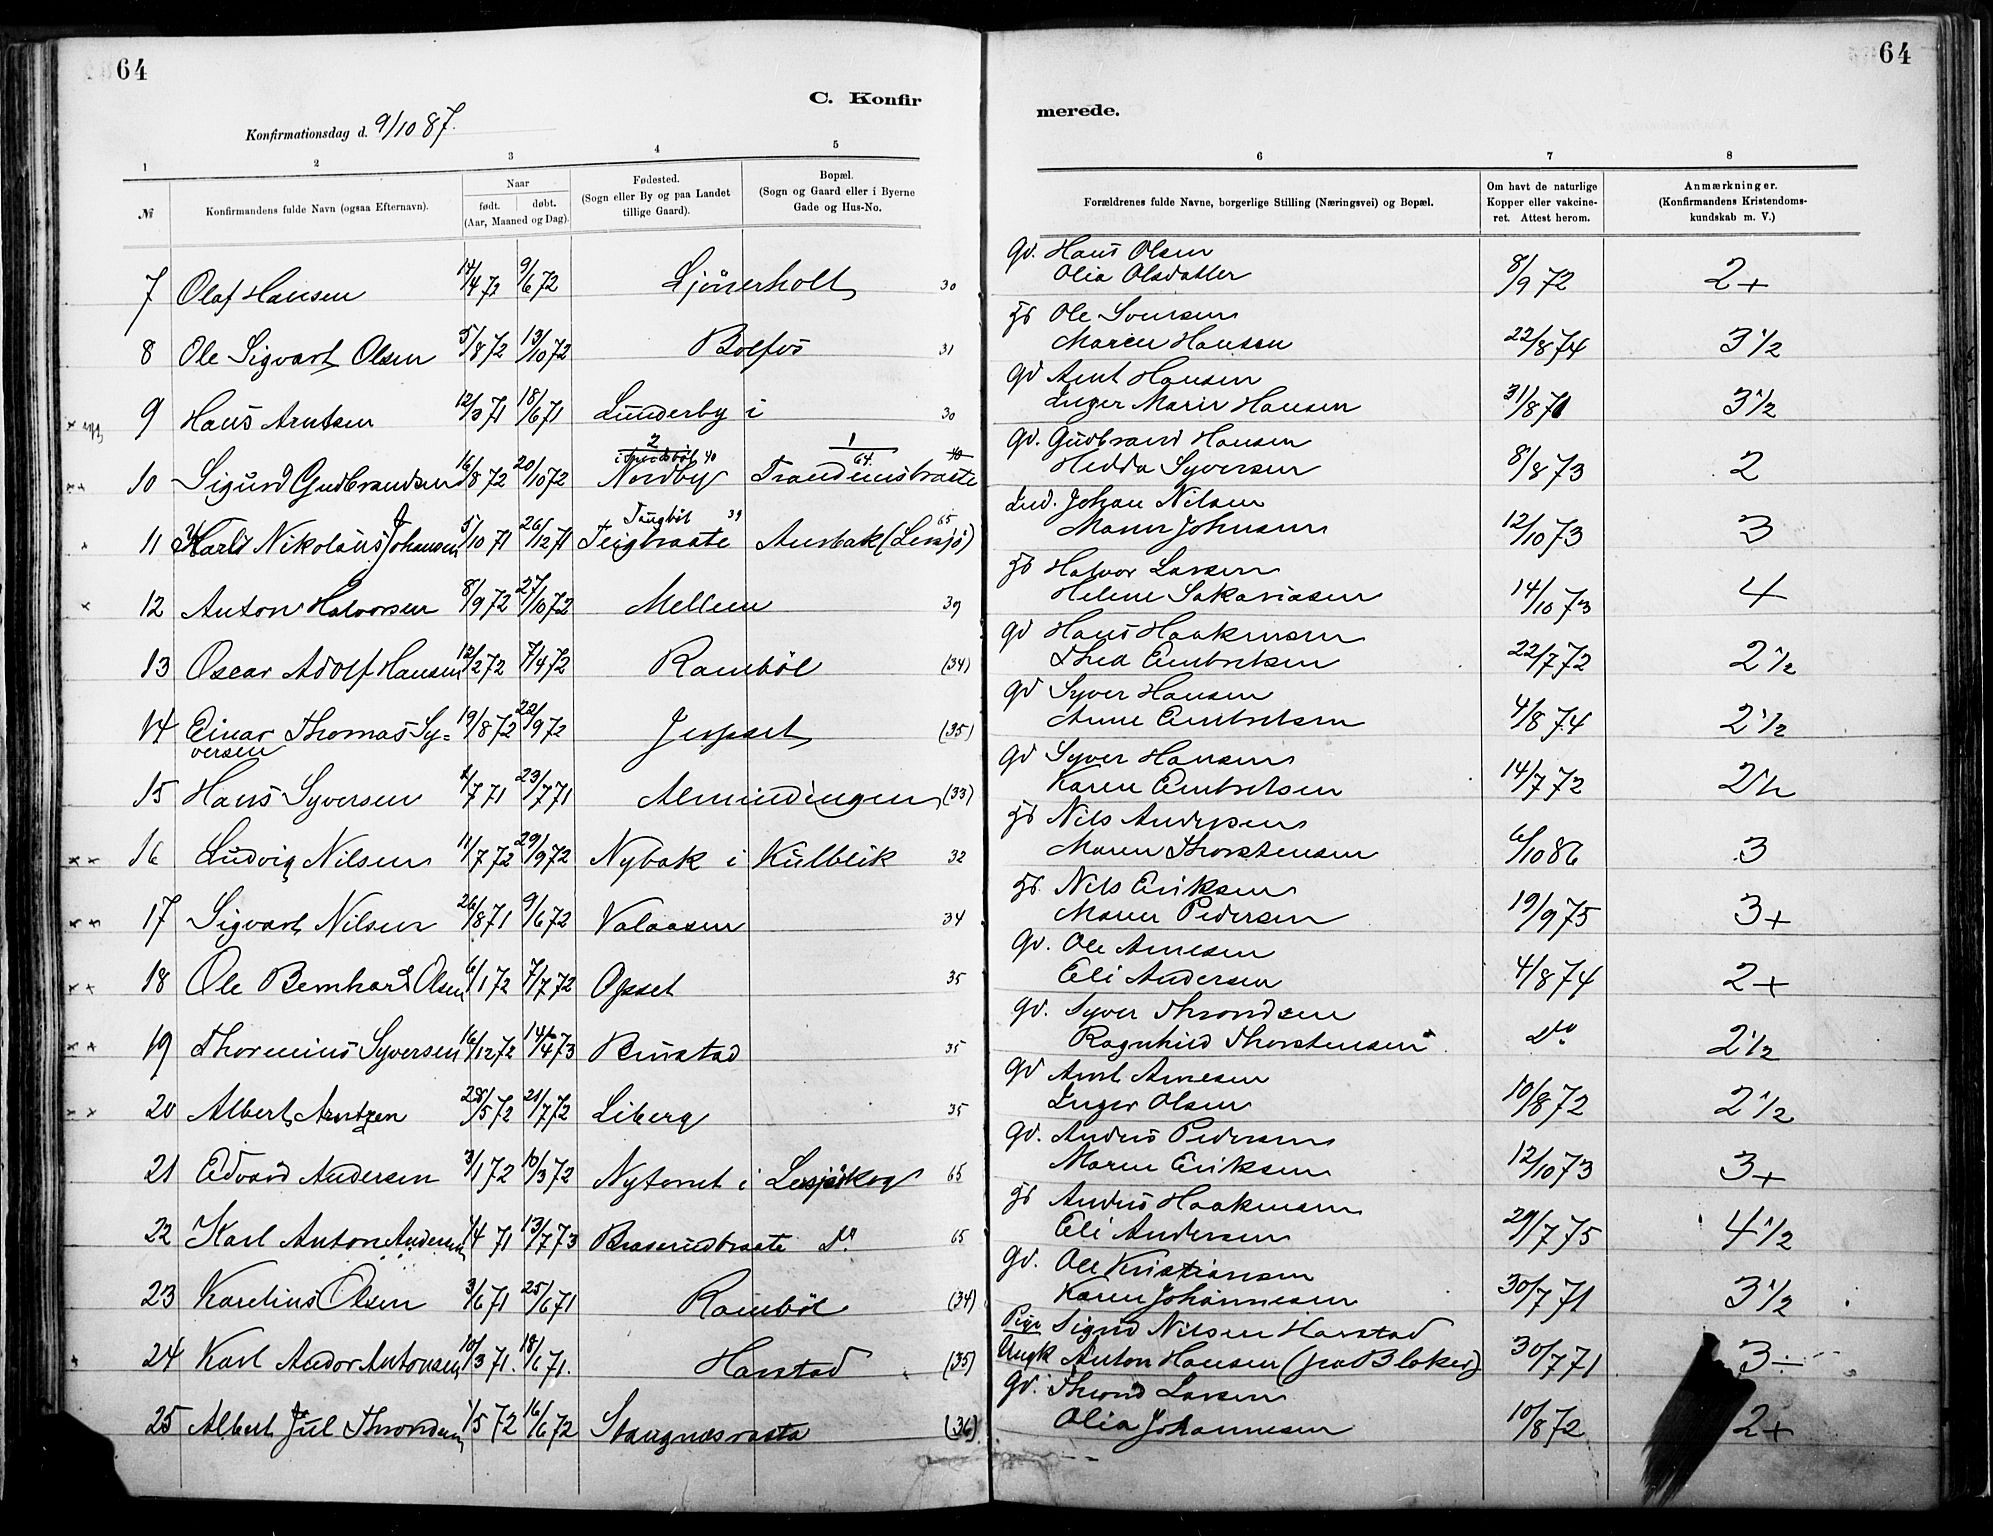 64
64
C. Konfir
merede.
Konfirmationsdag d. 9/10 87.
1 2 3 4 5 6 7 8
№
Konfirmandens fulde Navn (ogsaa Efternavn).
Naar
født. døbt.
(Aar, Maaned og Dag).
Fødested.
(Sogn eller By og paa Landet
tillige Gaard).
Bopæl.
(Sogn og Gaard eller i Byerne
Gade og Hus-No.
Forældrenes fulde Navne, borgerlige Stilling (Næringsvei) og Bopæl.
Om havt de naturlige
Kopper eller vakcine-
ret. Attest herom.
Anmærkninger.
(Konfirmandens Kristendoms-
kundskab m. V.)
7 Olaf Hansen 14/4 72 9/6 72 Ljönerholt 30
Gd. Hans Olsen
Olia Olsdatter 8/9 72 2+
8 Ole Sigvart Olsen 5/8 72 13/10 72 Bolfos 31
Ole Svensen
Maren Hansen 22/8 74 3 1/2
9 Hans Arntsen 12/3 71 18/6 71 Lunderby i 30
Gd Arnt Hansen
Inger Marie Hansen 31/8 71 3 1/2
10 Sigurd Gudbrandsen 16/8 72 20/10 72 Nordby 40 Trandemsbraate 64
Gd. Gudbrand Hansen
Hedda Syversen 8/8 73 2
11 Karld Nikolaus Johansen 5/10 71 26/12 71 Tangböl 39 Teigbraate Aurbak (Lersjö) 65
Ind. Johan Nilsen
Maren Johnsen 12/10 73 3
12 Anton Halvorsen 8/9 72 27/10 72 Mellem 39
Halvor Larsen
Helene Sakariasen 14/10 73 4
13 Oscar Adolf Hansen 12/2 72 7/4 72 Ramböl (34)
Gd Hans Haakensen
Thea Embretsen 22/7 72 2 1/2
14 Einar Thomas Sy=
versen 19/8 72 22/9 72 Jerpset (35)
Gd Syver Hansen
Anne Embretsen 4/8 74 2 1/2
15 Hans Syversen 2/7 71 23/7 71 Almindingen (33)
Gd Syver Hansen
Karen Embretsen 14/7 72 2 1/2
16 Ludvig Nilsen 11/7 72 29/9 72 Nybak i Kulblik 32
Nils Andersen
Maren Thorstensen 6/10 86 3
17 Sigvart Nilsen 26/8 71 9/6 72 Valaasen 34
Nils Eriksen
Maren Pedersen 19/9 75 3+
18 Ole Bernhard Olsen 6/1 72 7/7 72 Opset 35
Gd. Ole Arnesen
Eli Andersen 4/8 74 2+
19 Thorinius Syversen 16/12 72 14/4 73 Burstad 35
Gd. Syver Throndsen
Ragnhild Thorstensen Do 2 1/2
20 Albert Arntzen 28/5 72 21/7 72 Liberg 35
Gd Arnt Arnesen
Inger Olsen 10/8 72 2 1/2
21 Edvard Andersen 3/1 72 10/3 72 Nytomt i Lersjöskog 65
Gd. Anders Pedersen
Maren Eriksen 12/10 73 3+
22 Karl Anton Andersen 1/4 71 13/7 73 Braserudbraate Do 65
Anders Haakensen
Eli Andersen 29/7 75 4 1/2
23 Karelius Olsen 3/6 71 25/6 71 Ramböl (34)
Gd. Ole Kristiansen
Karen Johannesen 30/7 71 3 1/2
24 Karl Andor Antonsen 10/3 71. 18/6 71. Harstad (35)
Pige Sigrid Nilsen Harstad
Ungk Anton Hansen (fra Blaker) 30/7 71 3÷
25 Albert Jul Throndsen 1/5 72 16/6 72 Stangnæsrasta (36)
Gd. Thrond Larsen
Olia Johannesen 10/8 72 2+